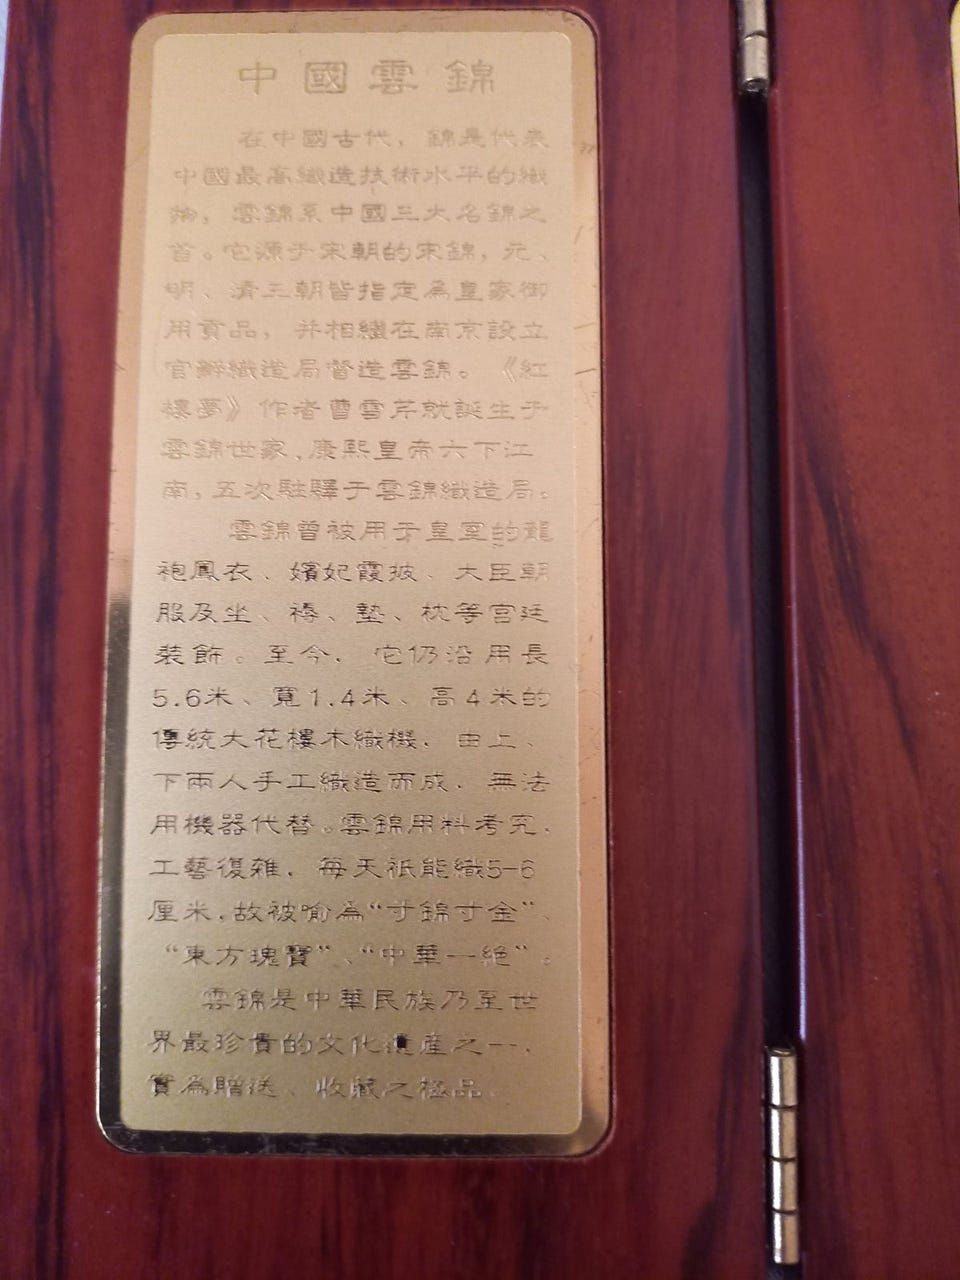 中國雲錦
在中國古代，錦是代表
中國最高織造技術水平的織
物，雲錦系中國三大名錦之
首。它源于宋朝的宋錦，元、
明、清三朝皆指定為皇家御
用貢品，并相繼在南京設立
官辦織造局督造雲錦。《紅
樓夢》作者曹雪芹就誕生于
雲錦世家，康熙皇帝六下江
南，五次駐驛于雲錦織造局。
雲錦曾被用于皇室的龍
袍鳳衣、嬪妃霞披、大臣朝
服及坐、褥、墊、枕等宮廷
裝飾。至今，它仍沿用長
5.6米、寬1.4米、高4米的
傳統大花樓木織機，由上、
下兩人手工織造而成，無法
用機器代替。雲錦用料考究，
工藝復雜，每天祇能織5-6
厘米，故被喻為“寸錦寸金”、
“東方瑰寶”、“中華一絕”。
雲錦是中華民族乃至世
界最珍貴的文化遺産之一，
實為贈送、收藏之極品。